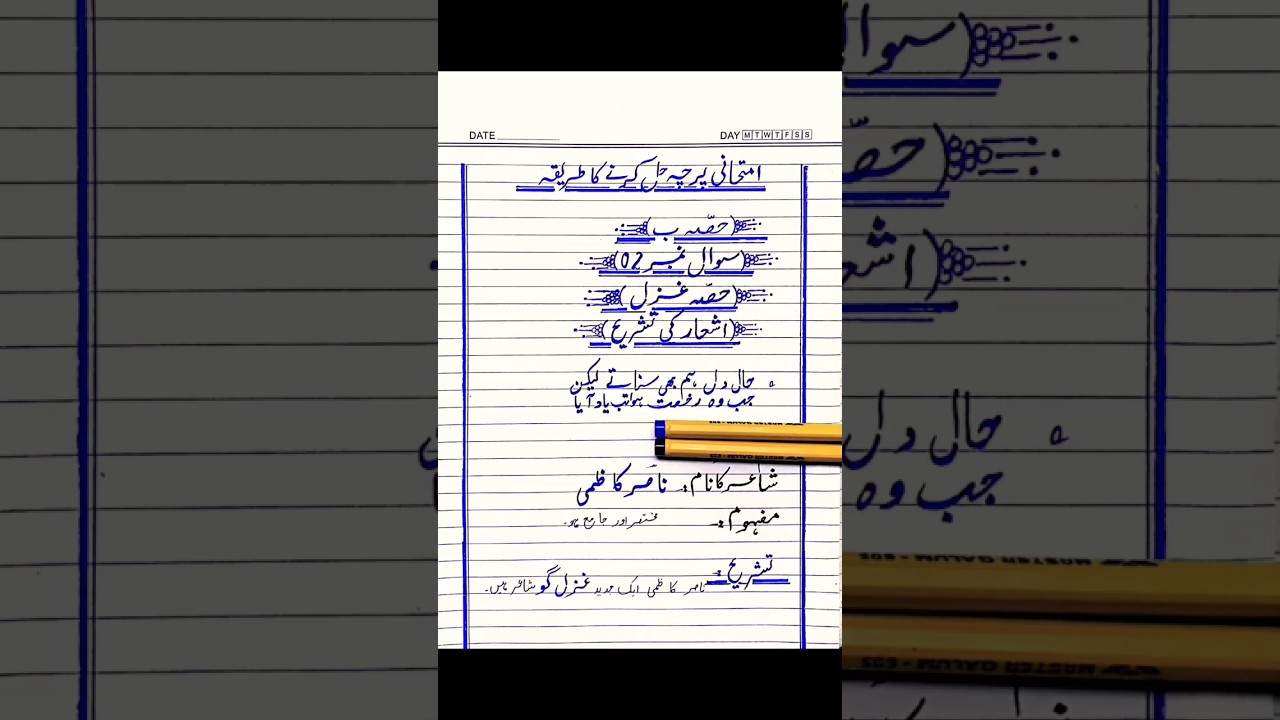 DATE
DAY M T W T F S S
امتحانی پرچہ حل کرنے کا طریقہ
(حصّہ ب)
(سوال نمبر 02)
(حصّہ غزل)
(اشعار کی تشریح)
حال دل ہم بھی سناتے لیکن
جب وہ رخصت ہوا تب یاد آیا
شاعر کا نام:۔ ناصر کاظمی
مفہوم:۔ مختصر اور جامع ہو۔
تشریح:۔
ناصر کاظمی ایک جدید غزل گو شاعر ہیں۔